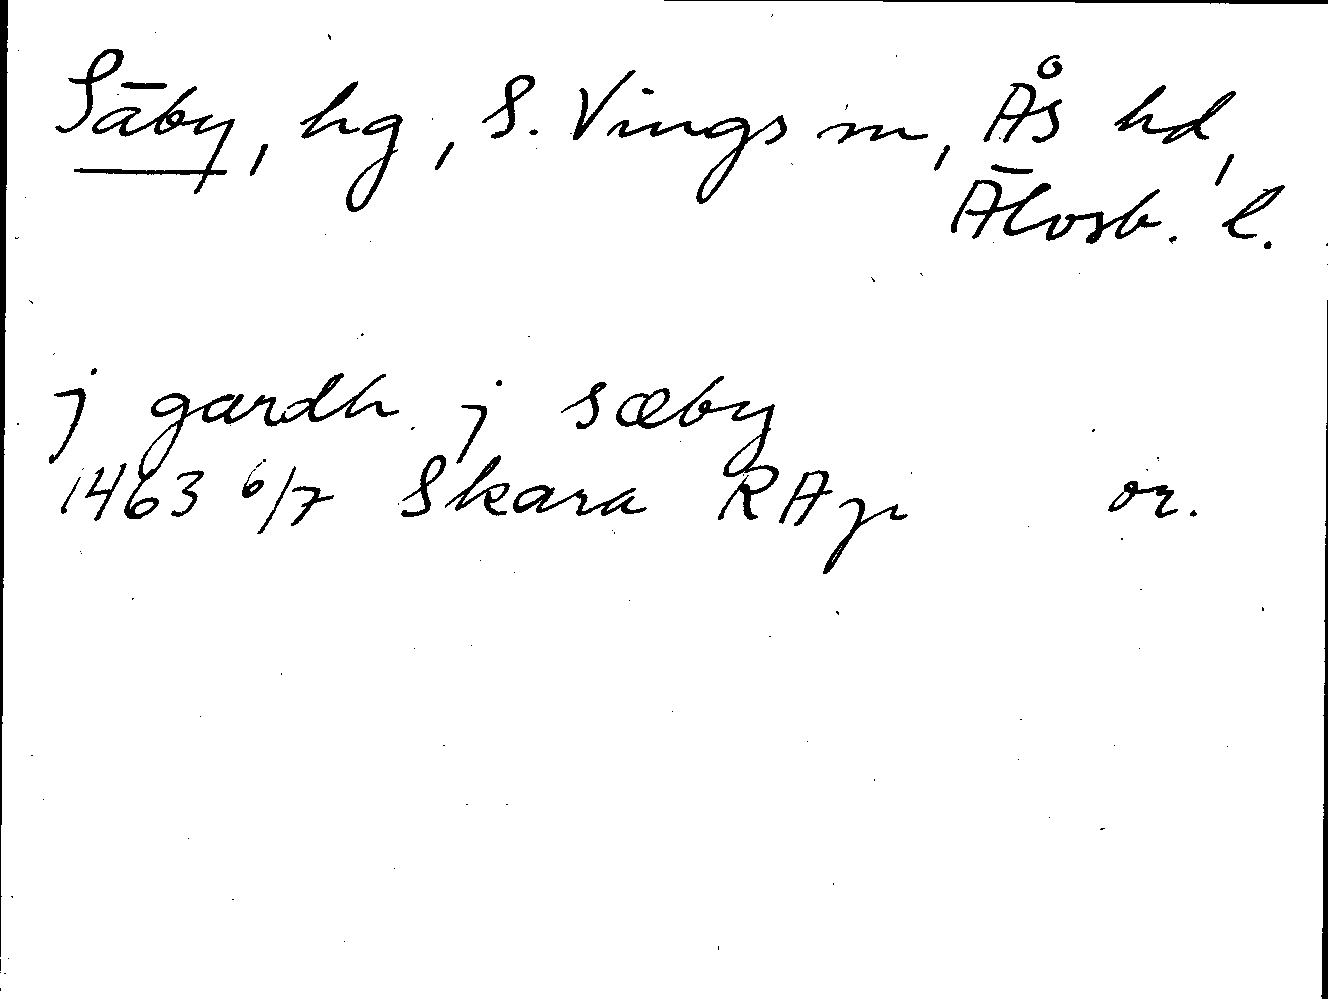 Säby, hg, S. Vings sn, Ås hd,
Älvsb. l.
j gardh j sæby
1463 6/7 Skara RAp or.